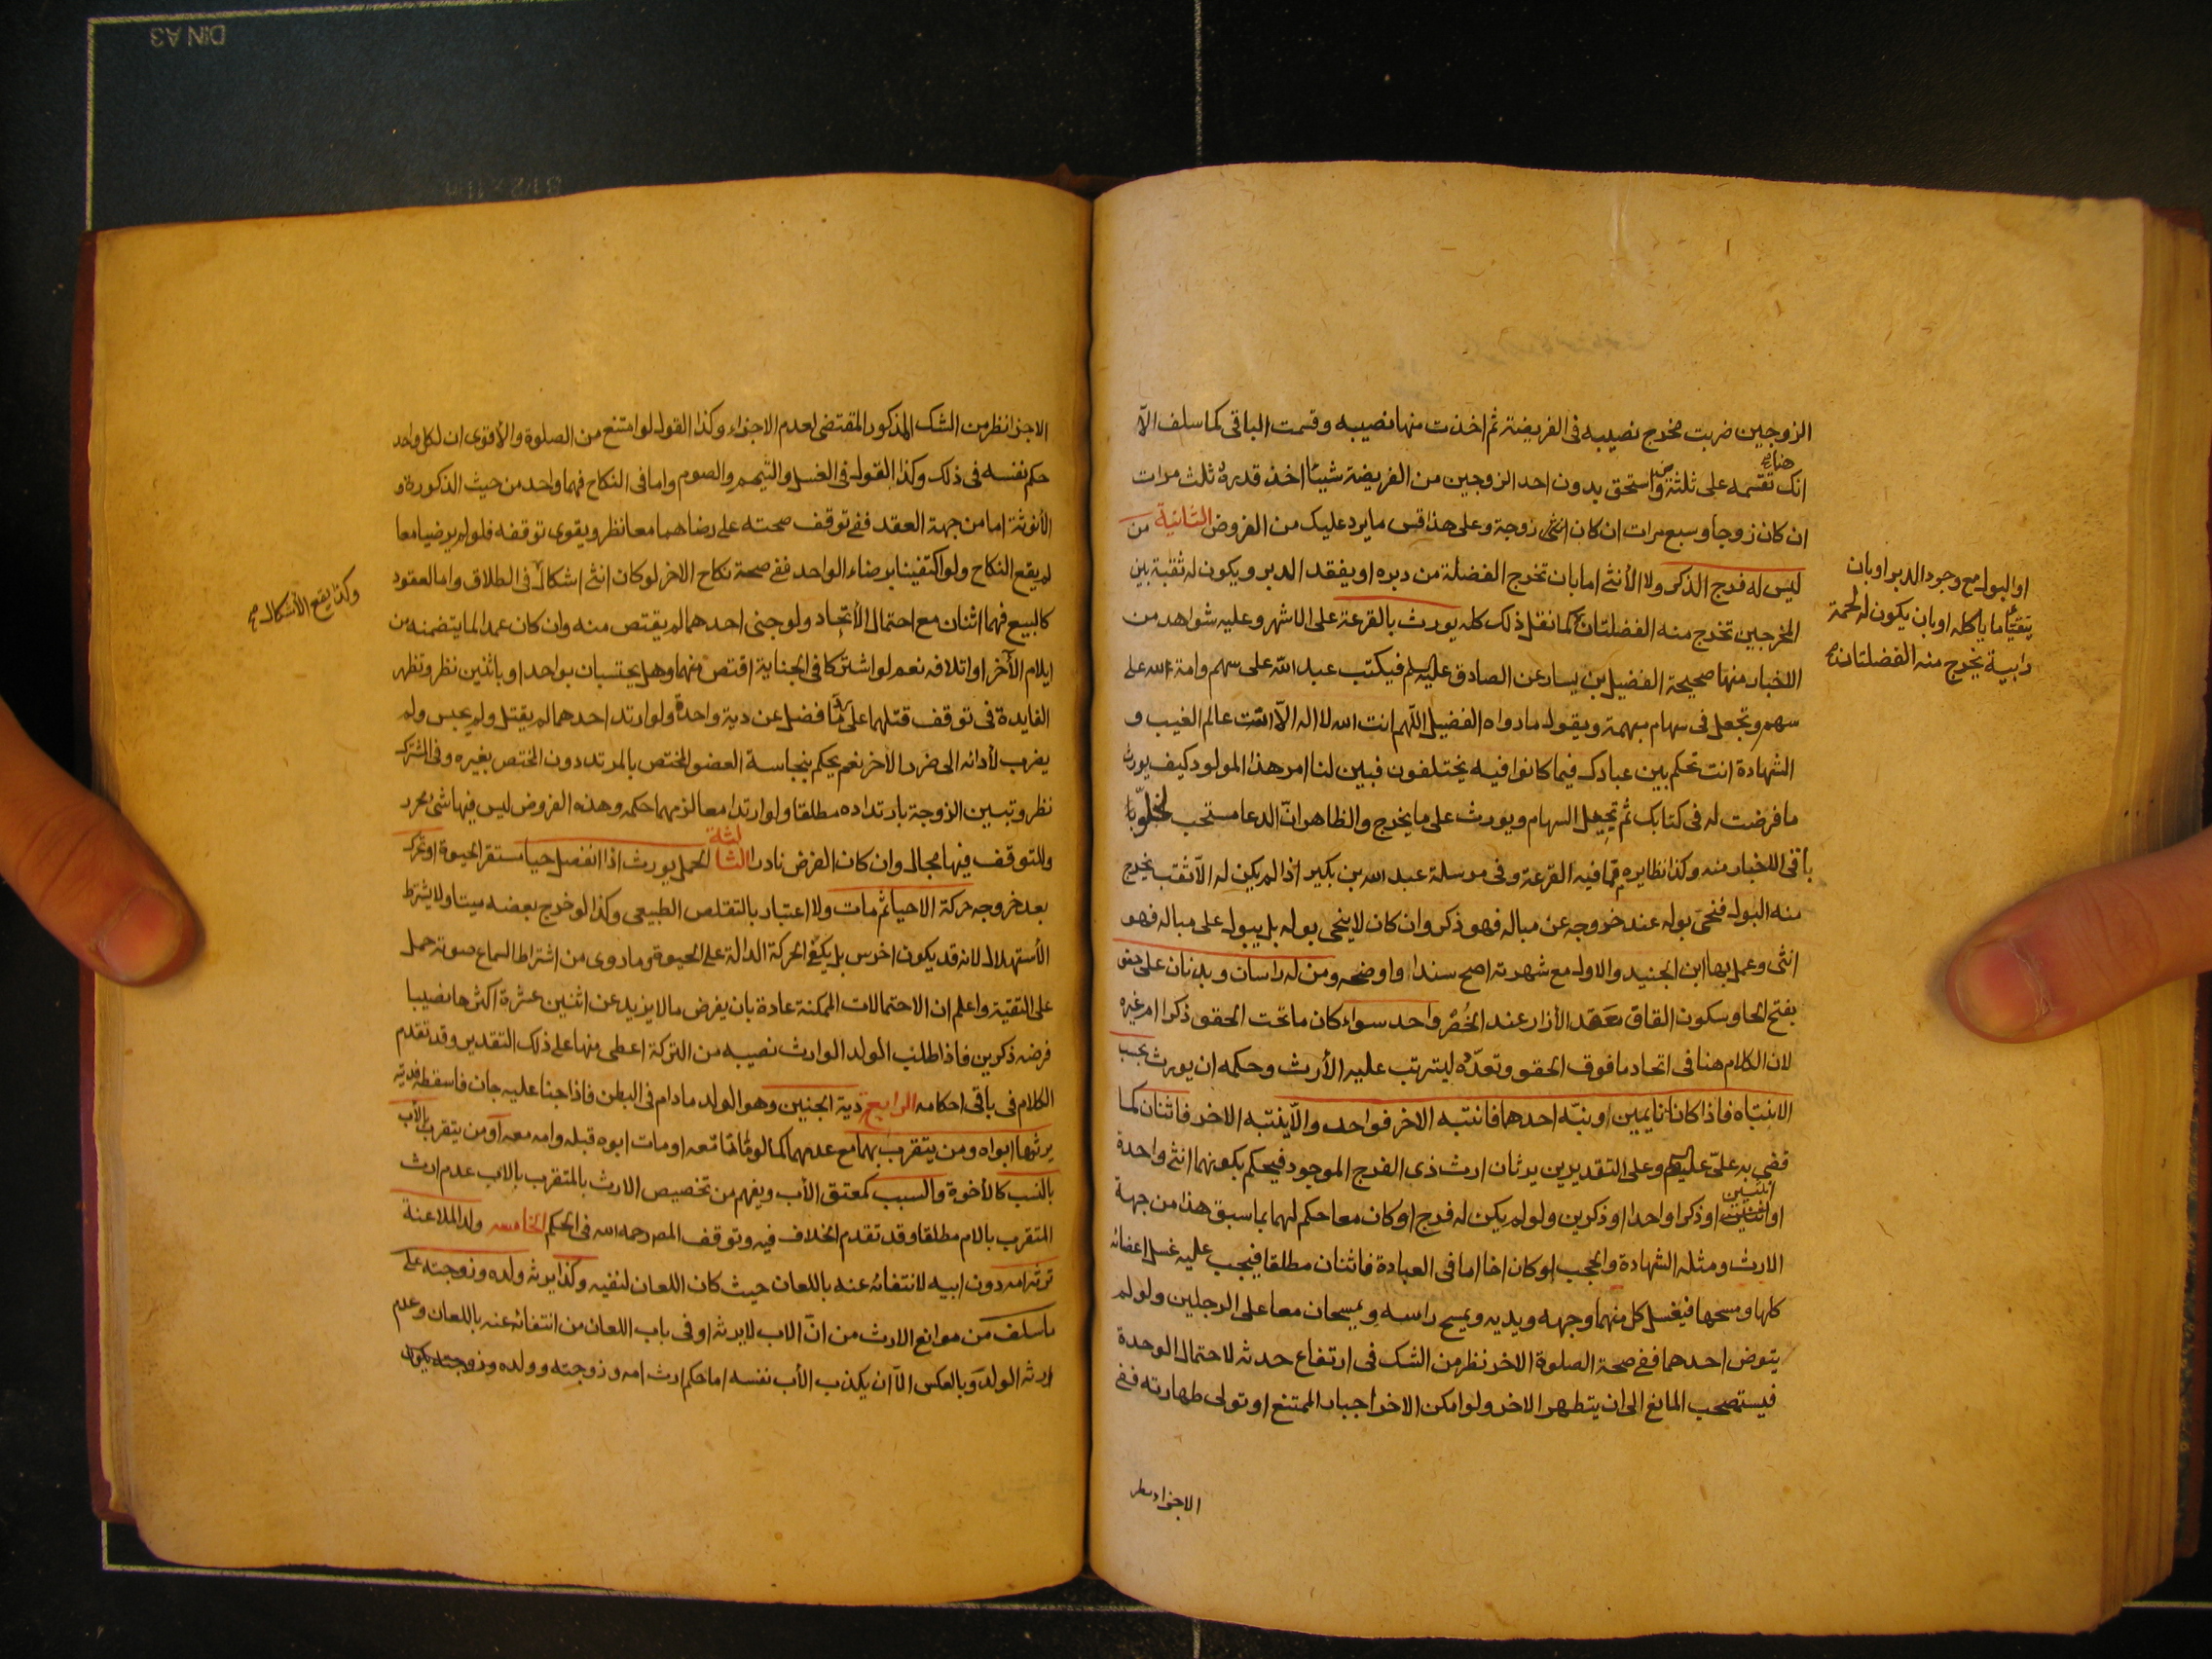 الزوجين ضربت مخرج نصيبه في الفريضة ثم اخذت منها نصيبه وقسمت الباقي كما سلف الاّ
انك هنا تقسمه على ثلثة وما استحق بدون احد الزوجين من الفريضة شيئا اخذ قدره ثلث مرات
ان كان زوجا وسبع مرات ان كان انثى زوجة وعلى هذا قس ما يرد عليك من الفروض الثانية من
ليس له فرج الذكر ولا الأنثى اما بان تخرج الفضلة من دبره او يفقد الدبر ويكون له ثقبة بين
المخرجين تخرج منه الفضلتان كما نقل ذلك كله يورث بالقرعة على الاشهر وعليه شواهد من
الاخبار منها صحيحة الفضيل بن يسار عن الصادق عليه السلم فيكتب عبد الله على سهم وامة الله على
سهم وتجعل في سهام مبهمة ويقول ما رواه الفضيل اللهم انت الله لا اله الاّ انت عالم الغيب و
الشهادة انت تحكم بين عبادك فيما كانوا فيه يختلفون فبين لنا امر هذا المولود كيف يورث
ما فرضت له في كتابك ثم تجعل السهام ويورث على ما يخرج والظاهر انّ الدعا مستحب لخلوّ
باقي الاخبار منه وكذا نظايره مما فيه القرعة وفي مرسلة عبد الله بن بكير اذا لم يكن له الاّ ثقب يخرج
منه البول فنحى بوله عند خروجه عن مباله فهو ذكر وان كان لا ينحى بوله بل يبول على مباله فهو
انثى وعمل بها ابن الجنيد والاول مع شهرته اصح سندا واوضح ومن له راسان وبدنان على حقو
بفتح الحا وسكون القاف معقد الأزار عند الخصر واحد سواء كان ما تحت الحقو ذكرا ام غيره
لان الكلام هنا في اتحاد ما فوق الحقو وتعدّده ليترتب عليه الأرث وحكمه ان يورث بحسب
الانتباه فاذا كانا نايمين ونبّه احدهما فانتبه الاخر فواحد والاّ ينتبه الاخر فاثنان كما
قضى به علىّ عليه السلم وعلى التقديرين يرثان ارث ذي الفرج الموجود فيحكم بكونهما انثى واحدة
او انثيين او ذكرا واحدا او ذكرين ولو لم يكن له فرج او كان معا حكم لهما بما سبق هذا من جهة
الارث ومثله الشهادة والحجب لو كان اخا اما في العبادة فاثنان مطلقا فيجب عليه غسل اعضائه
كلها ومسحها فيغسل كل منهما وجهه ويديه ويمسح راسه ويمسحان معا على الرجلين ولو لم
يتوض احدهما ففي صحة الصلوة الاخر نظر من الشك في ارتفاع حدثه لاحتمال الوحدة
فيستصحب المانع الى ان يتطهر الاخر ولو امكن الاخر اجبار الممتنع او تولى طهارته ففي
الاجزاء نظر
او البول مع وجود الدبر او بان
يتقيّأ ما ياكله او بان يكون له لحمة
رابية يخرج منه الفضلتان
الاجزا نظر من الشك المذكور المقتضى لعدم الاجزاء وكذا القول لو امتنع من الصلوة والأقوى ان لكل واحد
حكم نفسه في ذلك وكذا القول في الغسل والتيمم والصوم واما في النكاح فهما واحد من حيث الذكورة و
الأنوثة اما من جهة العقد ففي توقف صحته على رضاهما معا نظر ويقوى توقفه فلو لم يرضيا معا
لم يقع النكاح ولو اكتفينا برضاء الواحد ففي صحة نكاح الاخر لو كان انثى اشكال في الطلاق واما العقود
كالبيع فهما اثنان مع احتمال الأتحاد ولو جنى احدهما لم يقتص منه وان كان عمدا لما يتضمنه من
ايلام الأخر او اتلافه نعم لو اشتركا في الجناية اقتص منهما وهل يحتسبان بواحد او باثنين نظر وتظهر
الفايدة في توقف قتلهما على رد ما فضل عن دية واحدة ولو ارتد احدهما لم يقتل ولم يحبس ولم
يضرب لأدائه الى ضرر الأخر نعم يحكم بنجاسة العضو المختص بالمرتد دون المختص بغيره وفي المشترك
نظر وتبين الزوجة بارتداده مطلقا ولو ارتدا معا لزمهما حكمه وهذه الفروض ليس فيها شئ محرر
وللتوقف فيها مجال وان كان الفرض نادرا الثالثة الحمل يورث اذا انفصل حيا مستقر الحيوة او تحرك
بعد خروجه حركة الاحيا ثم مات ولا اعتبار بالتقلص الطبيعي وكذا لو خرج بعضه ميتا ولا يشترط
الأستهلال لانه قد يكون اخرس بل يكفي الحركة الدالة على الحيوة وما روى من اشتراط السماع صوته حمل
على التقية واعلم ان الاحتمالات الممكنة عادة بان يفرض ما لا يزيد عن اثنين عشرة اكثرها نصيبا
فرضه ذكرين فاذا طلب الولد الوارث نصيبه من التركة اعطى منها على ذلك التقدير وقد تقدم
الكلام في باقي احكامه الرابع دية الجنين وهو الولد ما دام في البطن فاذا جنا عليه جان فاسقطه فديته
يرثها ابواه ومن يتقرب بهما مع عدمهما كما لو ماتا معه او مات ابوه قبله وامه معه او من يتقرب بالأب
بالنسب كالأخوة والسبب كمعتق الأب ويفهم من تخصيص الارث بالمتقرب بالاب عدم ارث
المتقرب بالام مطلقا وقد تقدم الخلاف فيه وتوقف المص رحمه الله في الحكم الخامس ولد الملاعنة
ترثه امه دون ابيه لانتفائه عنه باللعان حيث كان اللعان لنفيه وكذا يرثه ولده وزوجته على
ما سلف من موانع الارث من انّ الاب لا يرثه او في باب اللعان من انتفائه عنه باللعان وعدم
ارثه الولد وبالعكس الاّ ان يكذب الأب نفسه اما حكم ارث امه وزوجته وولده وزوجته يكون
وكذا يقع الأشكال